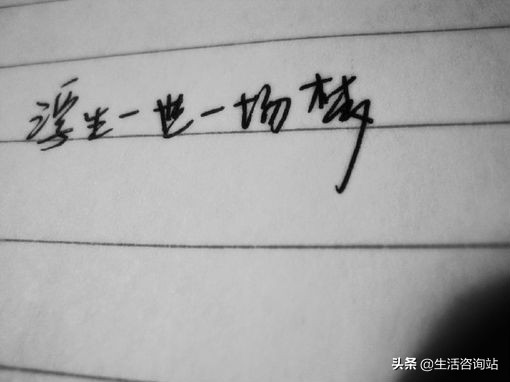 浮生一世一场梦
头条 @生活咨询站